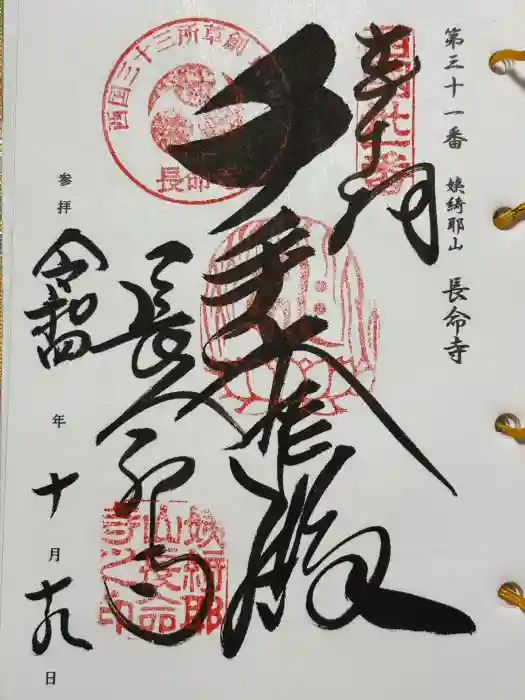 第三十一番 姨綺耶山 長命寺
奉拝
西国卅一番
千手大悲殿
西国三十三所草創
長命寺
長命寺
姨綺耶山長命寺之印
参拝 令和四年十月十九日